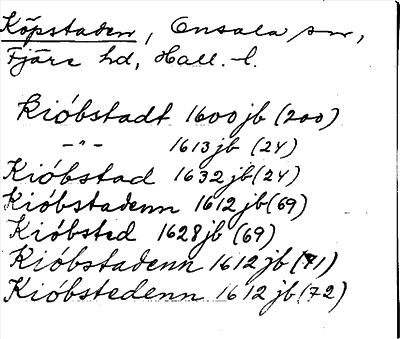 Köpstaden, Onsala sn,
Fjäre hd, Hall. l.
Kióbstadt 1600 jb (200)
-"- 1613 jb (24)
Kióbstad 1632 jb (24)
Kióbstadenn 1612 jb (69)
Kióbsted 1628 jb (69)
Kióbstadenn 1612 jb (71)
Kióbstedenn 1612 jb (72)